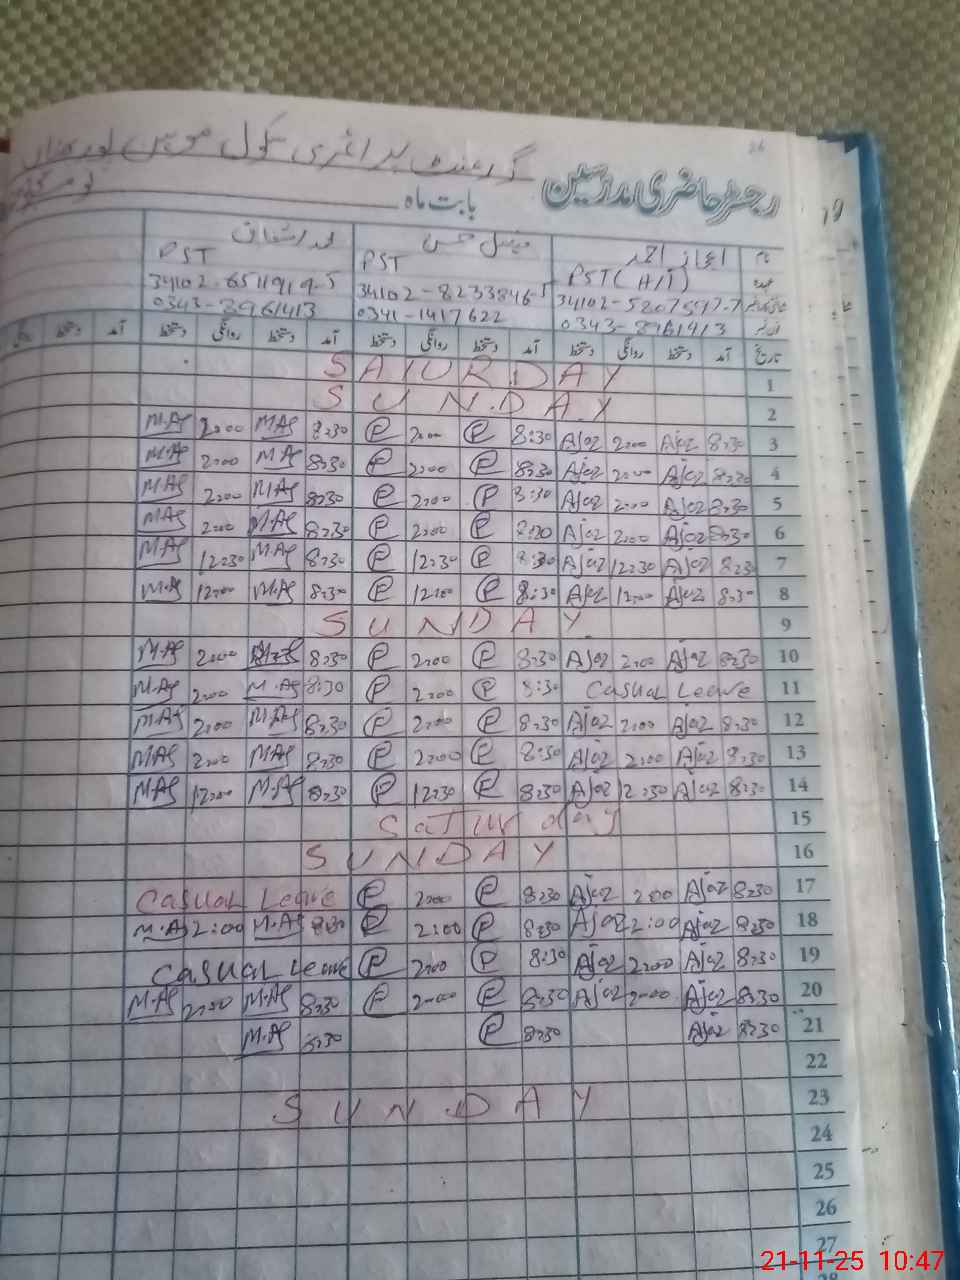 رجسٹر حاضری مدرسین گورنمنٹ پرائمری سکول
بابت ماہ نومبر
نام اعجاز احمد فیصل حسن محمد اشفاق
عہدہ PST (A/T) PST PST
34102-5807597-7 34102-8233846-5 34102-6511919-5
0343-8961413 0341-1417622 0343-8961413
تاریخ آمد دستخط روانگی دستخط آمد دستخط روانگی دستخط آمد دستخط روانگی دستخط آمد دستخط
1 SATURDAY
2 SUNDAY
3 8:30 Ajaz 2:00 Ajaz 8:30 P 2:00 P 8:30 M.AS 2:00 M.AS
4 8:30 Ajaz 2:00 Ajaz 8:30 P 2:00 P 8:30 M.AS 2:00 M.AS
5 8:30 Ajaz 2:00 Ajaz 8:30 P 2:00 P 8:30 M.AS 2:00 M.AS
6 8:30 Ajaz 2:00 Ajaz 8:30 P 2:00 P 8:30 M.AS 2:00 M.AS
7 8:30 Ajaz 12:30 Ajaz 8:30 P 12:30 P 8:30 M.AS 12:30 M.AS
8 8:30 Ajaz 12:00 Ajaz 8:30 P 12:00 P 8:30 M.AS 12:00 M.AS
9 SUNDAY
10 8:30 Ajaz 2:00 Ajaz 8:30 P 2:00 P 8:30 M.AS 2:00 M.AS
11 Casual Leave 8:30 P 2:00 P 8:30 M.AS 2:00 M.AS
12 8:30 Ajaz 2:00 Ajaz 8:30 P 2:00 P 8:30 M.AS 2:00 M.AS
13 8:30 Ajaz 2:00 Ajaz 8:30 P 2:00 P 8:30 M.AS 2:00 M.AS
14 8:30 Ajaz 12:30 Ajaz 8:30 P 12:30 P 8:30 M.AS 12:00 M.AS
15 Saturday
16 SUNDAY
17 8:30 Ajaz 2:00 Ajaz 8:30 P 2:00 P Casual Leave
18 8:30 Ajaz 2:00 Ajaz 8:30 P 2:00 P 8:30 M.AS 2:00 M.AS
19 8:30 Ajaz 2:00 Ajaz 8:30 P 2:00 P Casual Leave
20 8:30 Ajaz 2:00 Ajaz 8:30 P 2:00 P 8:30 M.AS 2:00 M.AS
21 8:30 Ajaz 8:30 P 8:30 M.AS
22
23 SUNDAY
24
25
26
27
28
21-11-25 10:47